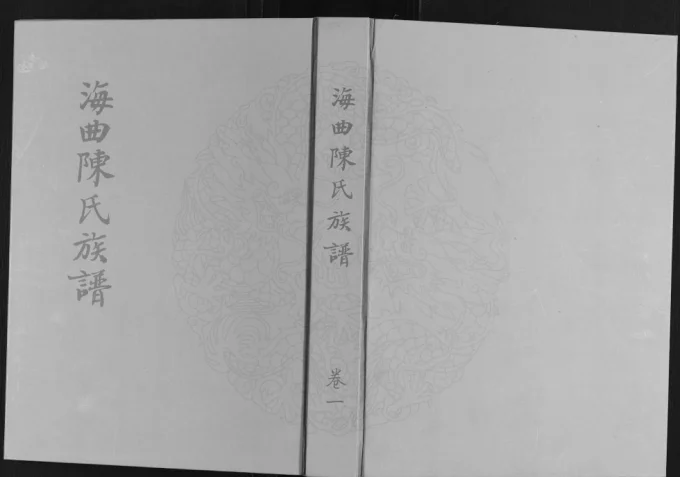 海曲陳氏族譜
海曲陳氏族譜
卷一